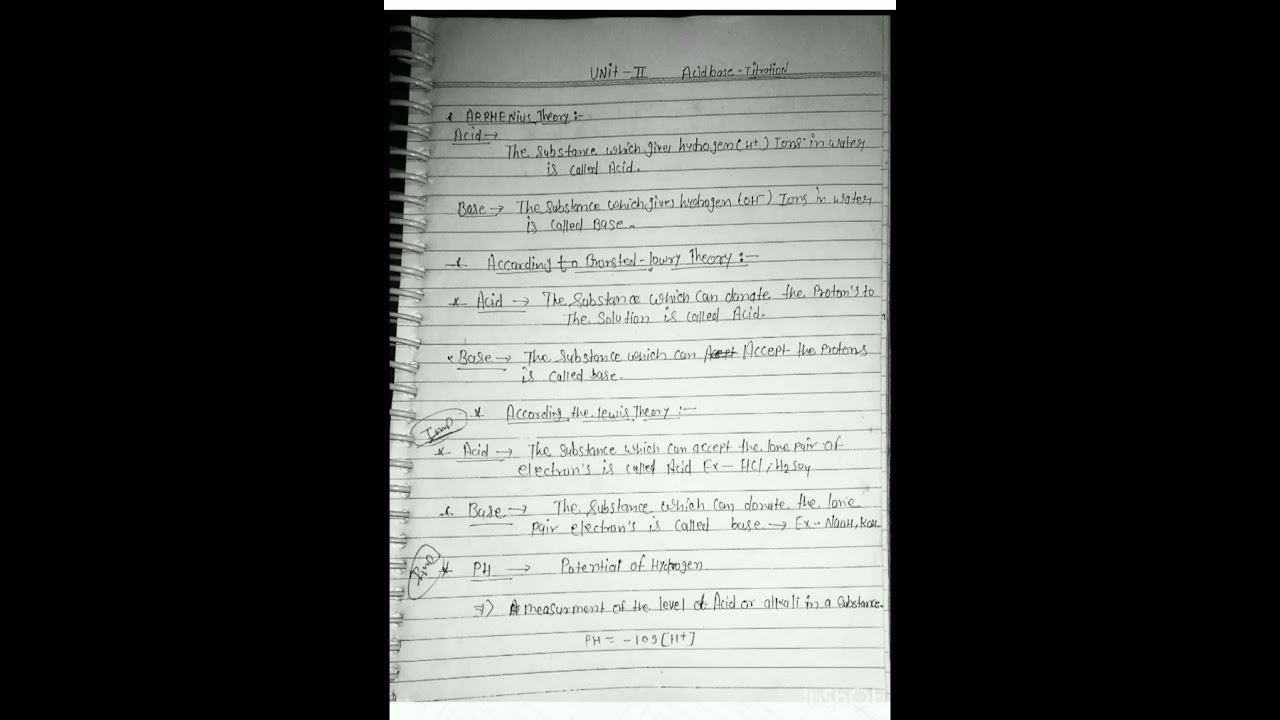 UNit - II Acidbase - Titration
* ARRHENius Theory :-
Acid →
The Substance which gives hydrogen (H+) Ions in water,
is called Acid.
Base → The Substance which gives hydrogen (OH-) Ions in water,
is called Base.
* According to Bronsted - lowry Theory :-
* Acid → The Substance which can donate the Proton's to
The Solution is called Acid.
* Base → The Substance which can Accept the Protons
is called base.
Imp * According the lewis Theory :-
* Acid → The Substance which can accept the lone pair of
electron's is called Acid Ex - HCl, H2SO4
* Base → The Substance which can donate the lone
pair electron's is called base → Ex - NaOH, KOH.
Imp * PH → Potential of Hydrogen
⇒ A measurment of the level of Acid or alkali in a Substance.
PH = -log[H+]
InShOt